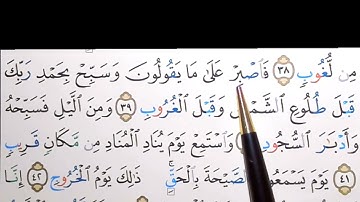 مِن لُّغُوبٍ ٣٨ فَاصْبِرْ عَلَىٰ مَا يَقُولُونَ وَسَبِّحْ بِحَمْدِ رَبِّكَ
قَبْلَ طُلُوعِ الشَّمْسِ وَقَبْلَ الْغُرُوبِ ٣٩ وَمِنَ اللَّيْلِ فَسَبِّحْهُ
وَأَدْبَارَ السُّجُودِ وَاسْتَمِعْ يَوْمَ يُنَادِ الْمُنَادِ مِن مَّكَانٍ قَرِيبٍ
٤١ يَوْمَ يَسْمَعُونَ الصَّيْحَةَ بِالْحَقِّ ۚ ذَٰلِكَ يَوْمُ الْخُرُوجِ ٤٢ إِنَّا